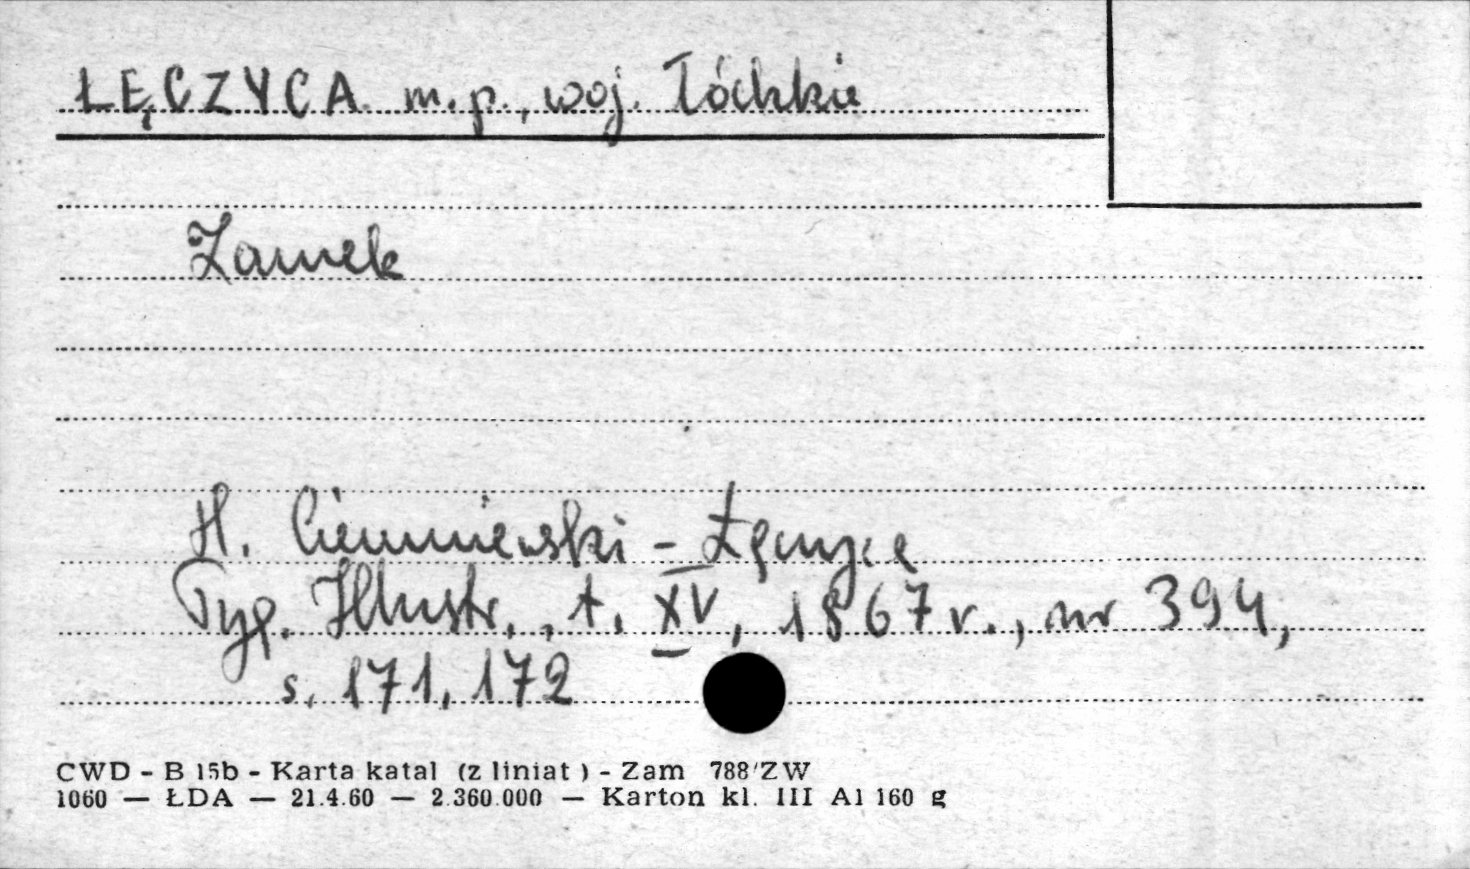 ŁĘCZYCA m.p., woj. Łódzkie
Zamek
H. Cieumniewski - Łęczyca
Tyg. Illustr., t. XV, 1867 r., nr 394,
s. 171, 172
CWD - B 15b - Karta katal (z liniat) - Zam 788/ZW
1060 — ŁDA — 21.4.60 — 2.360.000 — Karton kl. III A1 160 g